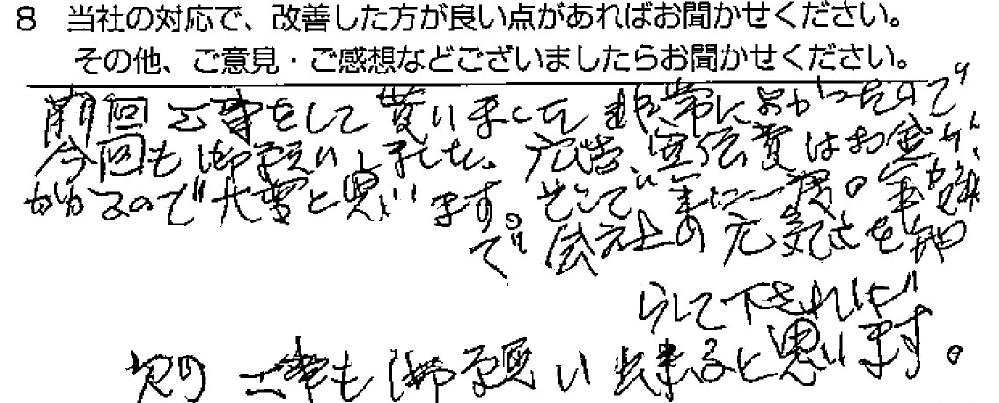 8 当社の対応で、改善した方が良い点があればお聞かせください。
その他、ご意見・ご感想などございましたらお聞かせください。
前回工事をして貰いました 非常によかったので
今回も御願いしました。広告、宣伝費はお金が、
かかるので大変と思います。そこで、年に一度の年賀状
で会社の元気さを知
らして下されば
次の工事も御願い出来ると思います。